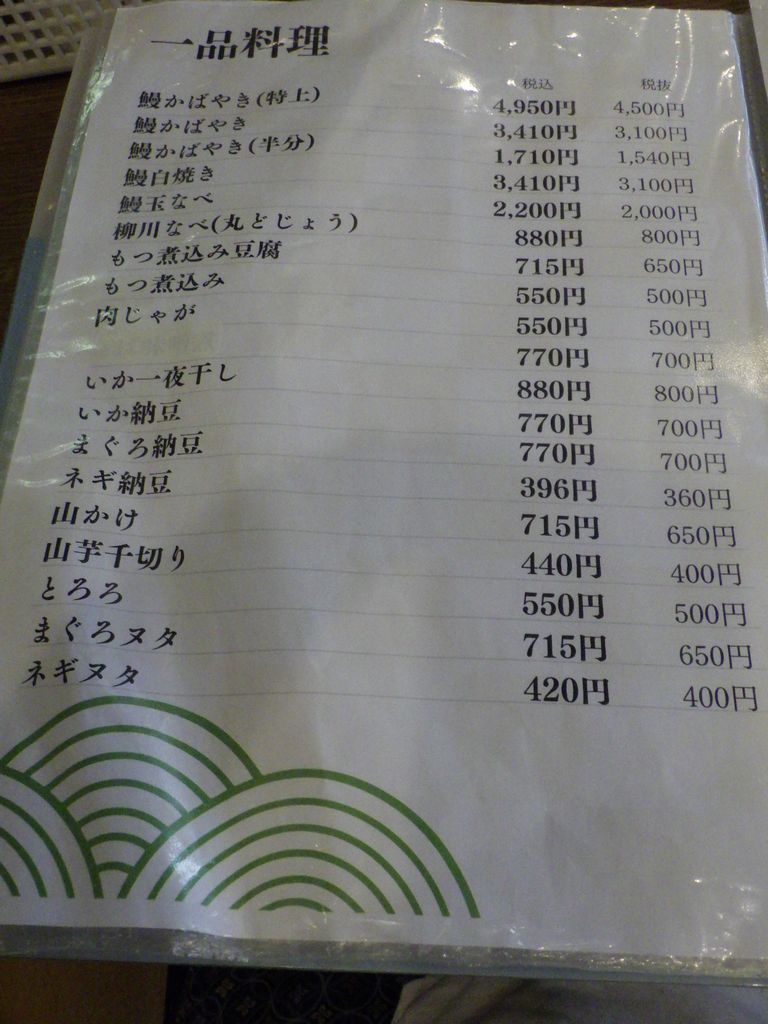 一品料理
税込 税抜
鰻かばやき(特上) 4,950円 4,500円
鰻かばやき 3,410円 3,100円
鰻かばやき(半分) 1,710円 1,540円
鰻白焼き 3,410円 3,100円
鰻玉なべ 2,200円 2,000円
柳川なべ(丸どじょう) 880円 800円
もつ煮込み豆腐 715円 650円
もつ煮込み 550円 500円
肉じゃが 550円 500円
770円 700円
いか一夜干し 880円 800円
いか納豆 770円 700円
まぐろ納豆 770円 700円
ネギ納豆 396円 360円
山かけ 715円 650円
山芋千切り 440円 400円
とろろ 550円 500円
まぐろヌタ 715円 650円
ネギヌタ 420円 400円